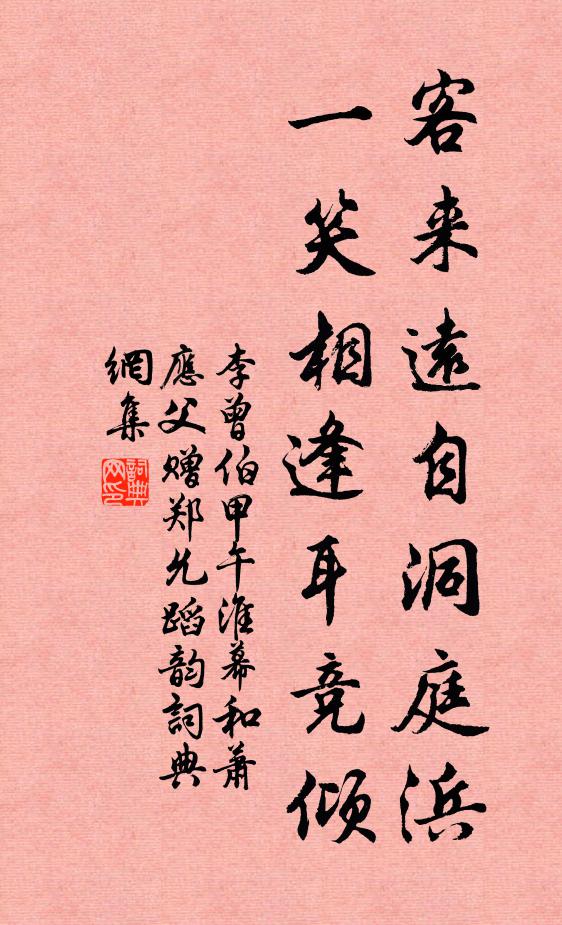 客来遠自洞庭浜
一笑相逢耳竞傾
李曾伯甲午淮幕和蕭
應父赠郑允蹈韵詞典
網集
詞典
网印